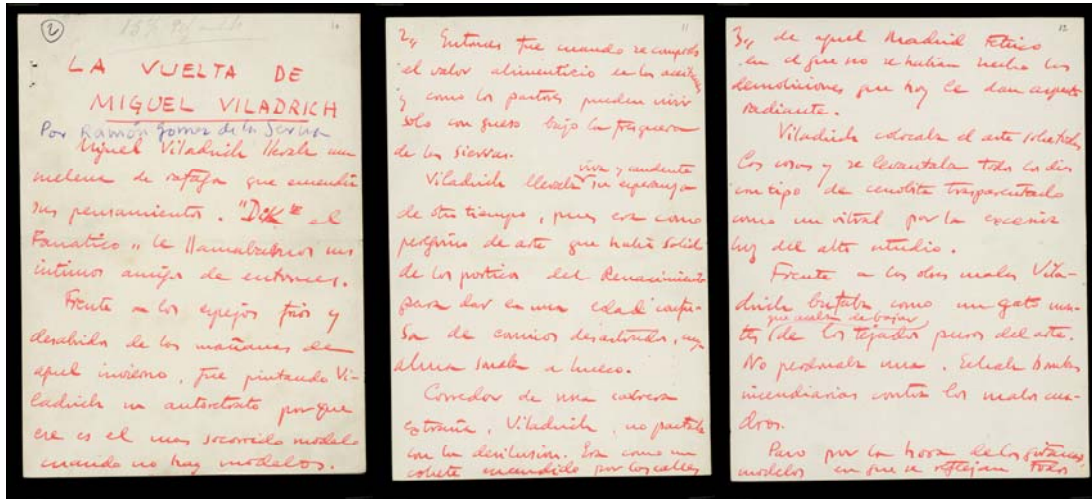 2
10
LA VUELTA DE
MIGUEL VILADRICH
Por Ramón Gomez de la Serna
Miguel Viladrich llevaba una
melena de rafaga que encendia
sus pensamientos. "Dick" el
Fanatico" le llamabamos sus
intimos amigos de entonces.
Frente a los espejos frios y
desabridos de las mañanas de
aquel invierno, fue pintando Vi-
ladrich un autorretrato porque
ese es el mas socorrido modelo
cuando no hay modelos.
11
2,, Entonces fue cuando se comprobó
el valor alimenticio en las aceitunas
y como los pastores pueden vivir
solo con queso bajo la fresquera
de las sierras.
viva y candente
Viladrich llevaba su esperanza
de otro tiempo, pues era como
peregrino de arte que habia salido
de los porticos del Renacimiento
para dar en una edad confu-
sa de caminos desastrados, cuya
alma sonaba a hueco.
Corredor de una carrera
extraña, Viladrich, no pactaba
con la desilusion. Era como un
cohete encendido por las calles
12
3,, de aquel Madrid tetrico
en el que no se habian hecho las
demoliciones que hoy le dan aspecto
radiante.
Viladrich colocaba el arte sobre todas
las cosas y se levantaba todos los dias
con tipo de cenobita trasparentado
como un vitral por la excesiva
luz del alto estudio.
Frente a las obras malas Vila-
drich bufaba como un gato mon-
que acaba de bajar
tés de los tejados puros del arte.
No perdonaba una. Echaba bombas
incendiarias contra los malos cua-
dros.
Paso por la hora de las gitanas,
modelos en que se reflejan todos